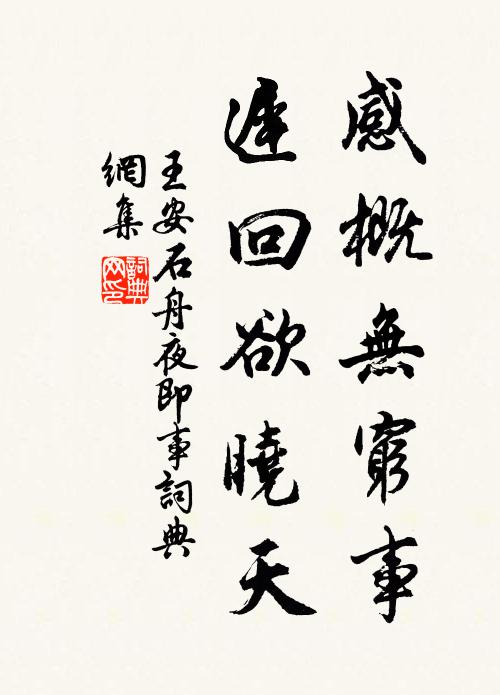 感概無窮事
遲回欲曉天
王安石舟夜即事詞典
網集
詞典
网印